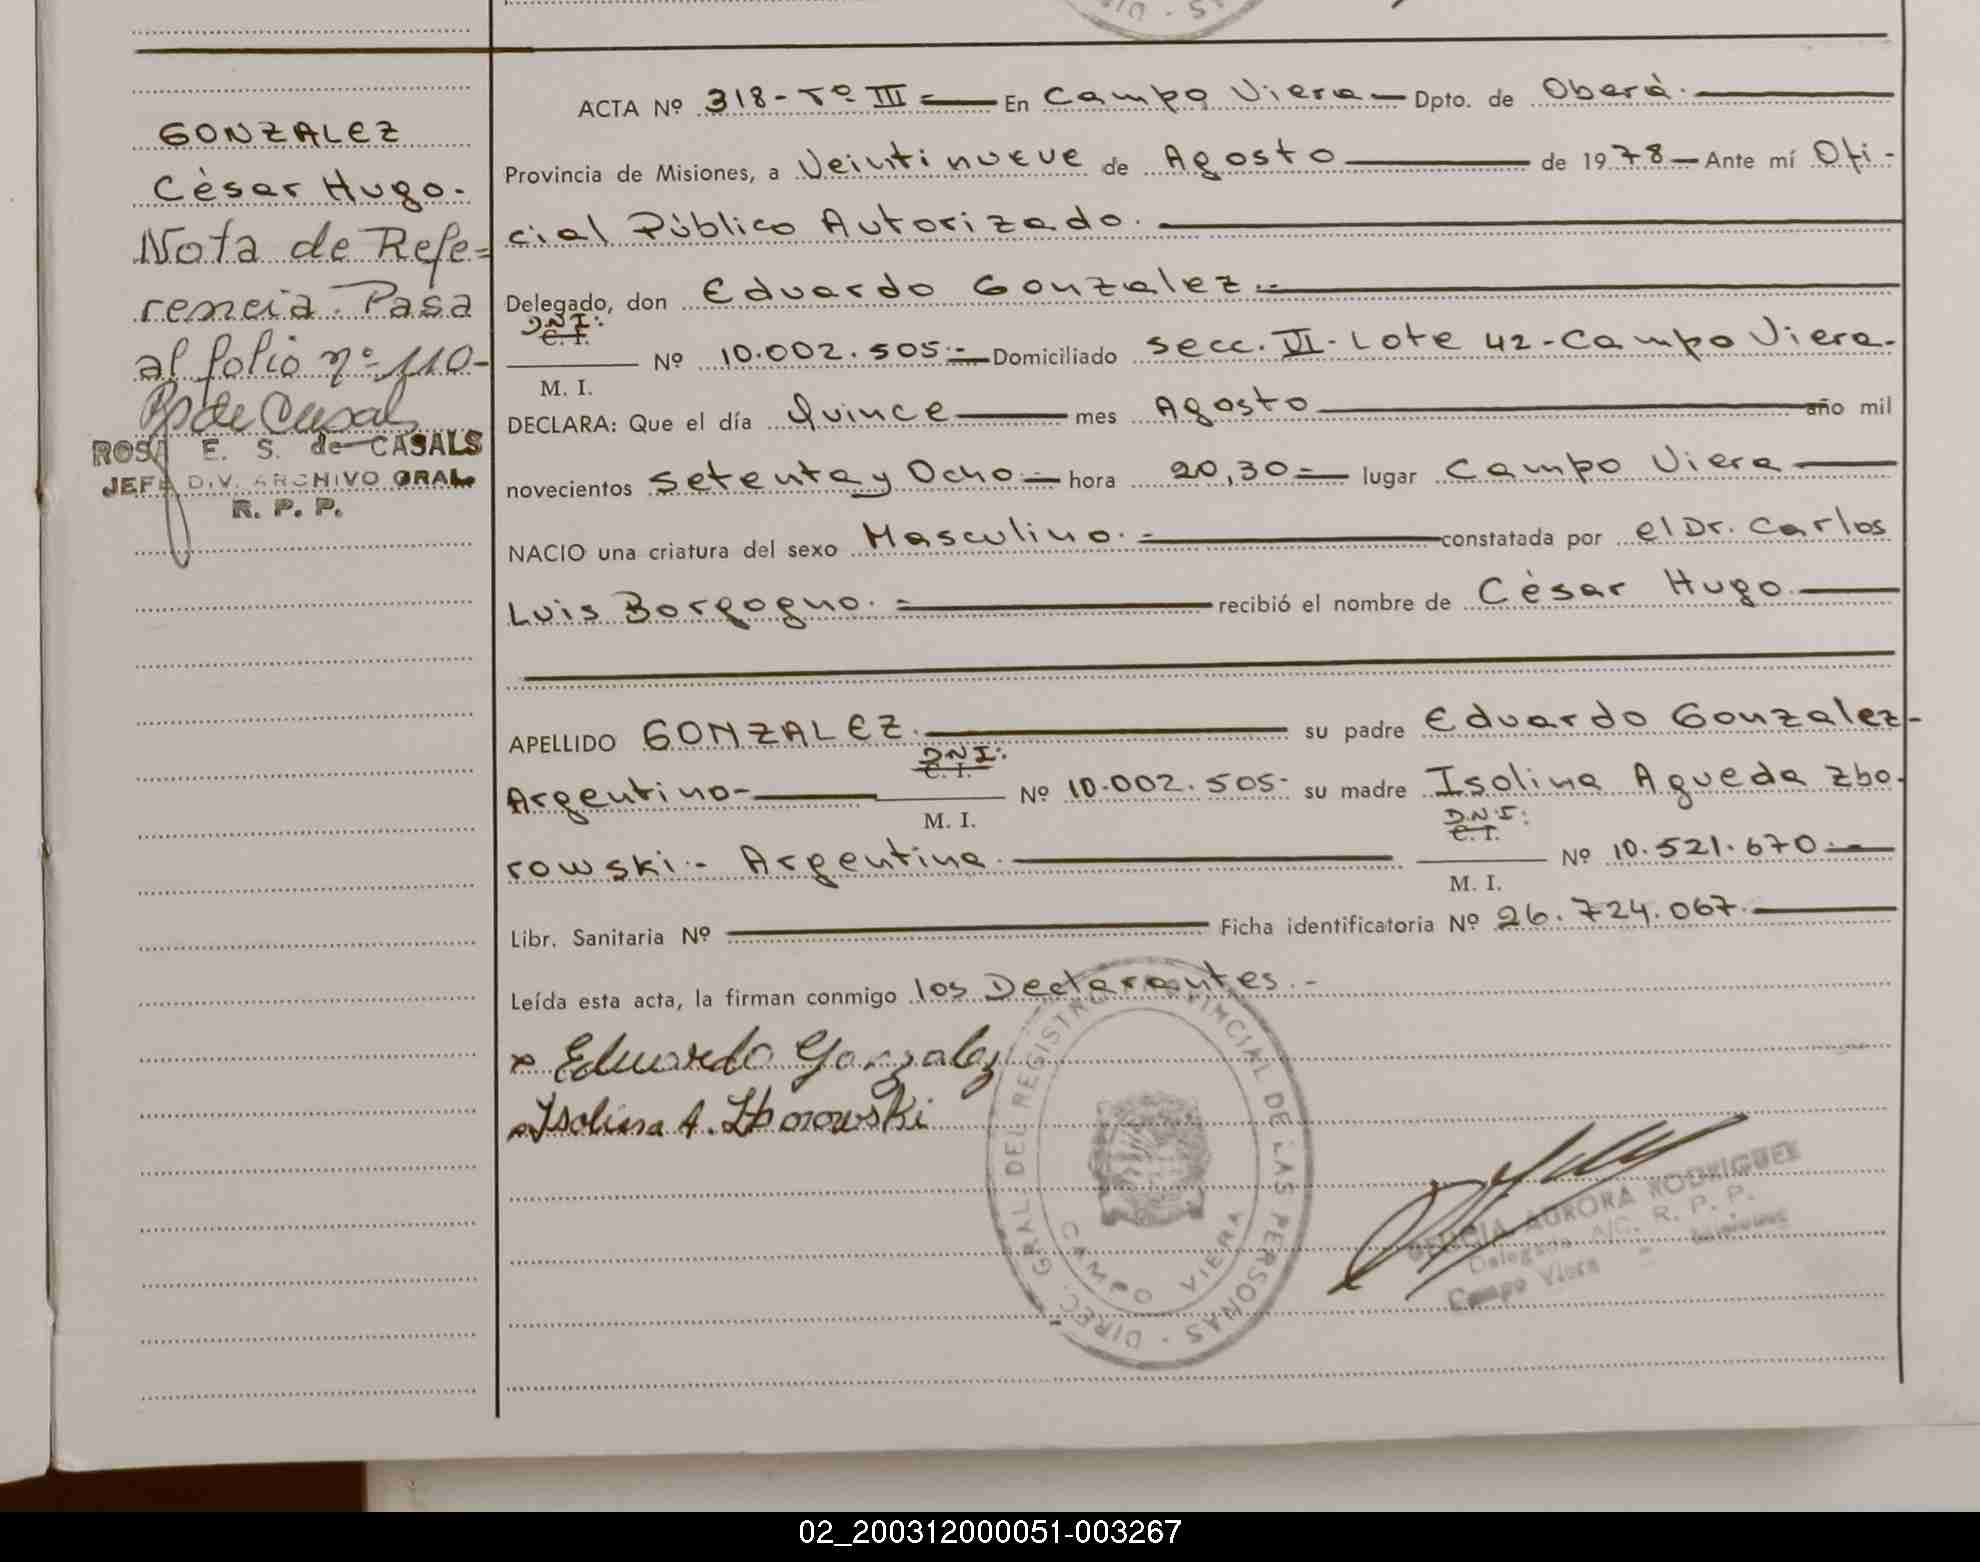 GONZALEZ
César Hugo.
Nota de Refe=
rencia. Pasa
al folio nº 110-
ROSA E. S. de CASALS
JEFA DIV. ARCHIVO GRAL.
R. P. P.
ACTA Nº 318-Tº III = En Campo Viera - Dpto. de Oberá.
Provincia de Misiones, a Veintinueve de Agosto de 1978 - Ante mí Ofi-
cial Público Autorizado.
Delegado, don Eduardo Gonzalez.-
D.N.I:
C. I.
M. I.
Nº 10.002.505.- Domiciliado Secc. VI - Lote 42 - Campo Viera-
DECLARA: Que el día Quince mes Agosto año mil
novecientos Setenta y Ocho.- hora 20,30 = lugar Campo Viera
NACIO una criatura del sexo Masculino.- constatada por el Dr. Carlos
Luis Borgogno.= recibió el nombre de César Hugo.
APELLIDO GONZALEZ. su padre Eduardo Gonzalez-
Argentino- D.N.I: C. I. M. I. Nº 10.002.505- su madre Isolina Agueda Zbo-
rowski.- Argentina. D.N.I: C. I. M. I. Nº 10.521.670.-
Libr. Sanitaria Nº Ficha identificatoria Nº 26.724.067.
Leída esta acta, la firman conmigo los Declarantes.-
Eduardo Gonzalez
Isolina A. Zborowski
DIREC. GRAL. DEL REGISTRO PROVINCIAL DE LAS PERSONAS -
CAMPO VIERA
AURORA RODRIGUEZ
Delegada A/C. R. P. P.
Campo Viera - Misiones
02_200312000051-003267